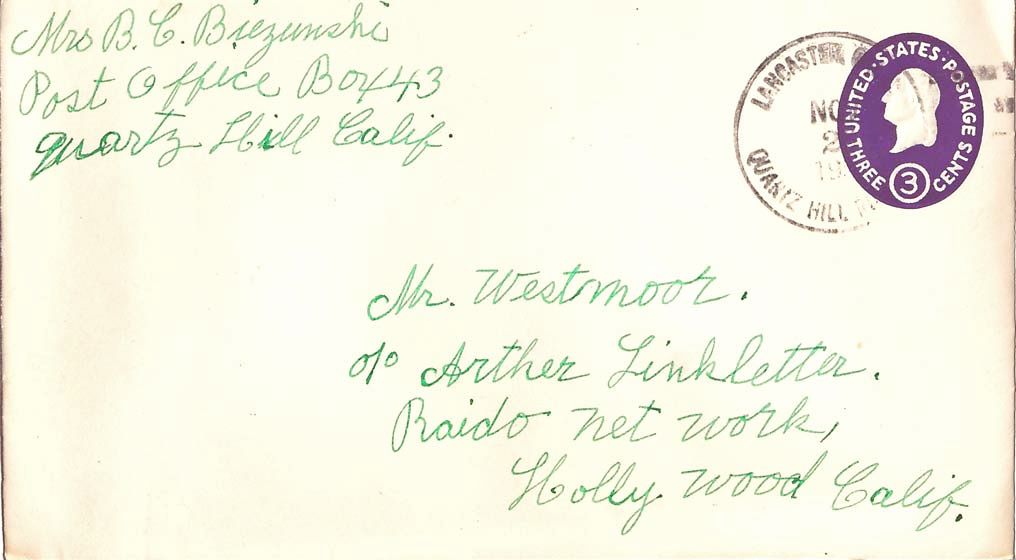 Mrs B. C. Biezunski
Post Office Box 43
Quartz Hill Calif.
LANCASTER
NO
2
19
QUARTZ HILL
UNITED·STATES·POSTAGE
THREE 3 CENTS
Mr. Westmoor.
c/o Arther Linkletter.
Raido net work,
Holly wood Calif.